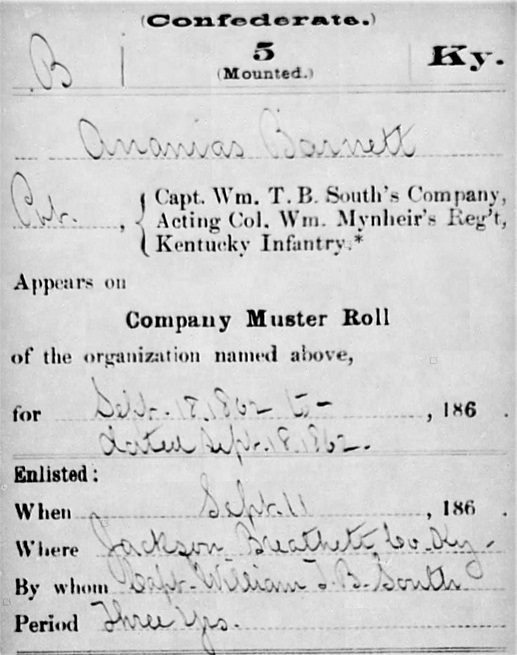 (Confederate.)
B | 5 Ky.
(Mounted.)
Ananias Barnett
Pvt., { Capt. Wm. T. B. South's Company,
Acting Col. Wm. Mynheir's Reg't,
Kentucky Infantry.*
Appears on
Company Muster Roll
of the organization named above,
for Sept. 18, 1862 to , 186 .
dated Sept. 18, 1862.
Enlisted:
When Sept. 11 , 186 .
Where Jackson Breathett Co. Ky.
By whom Capt. William T. B. South
Period Three Yrs.